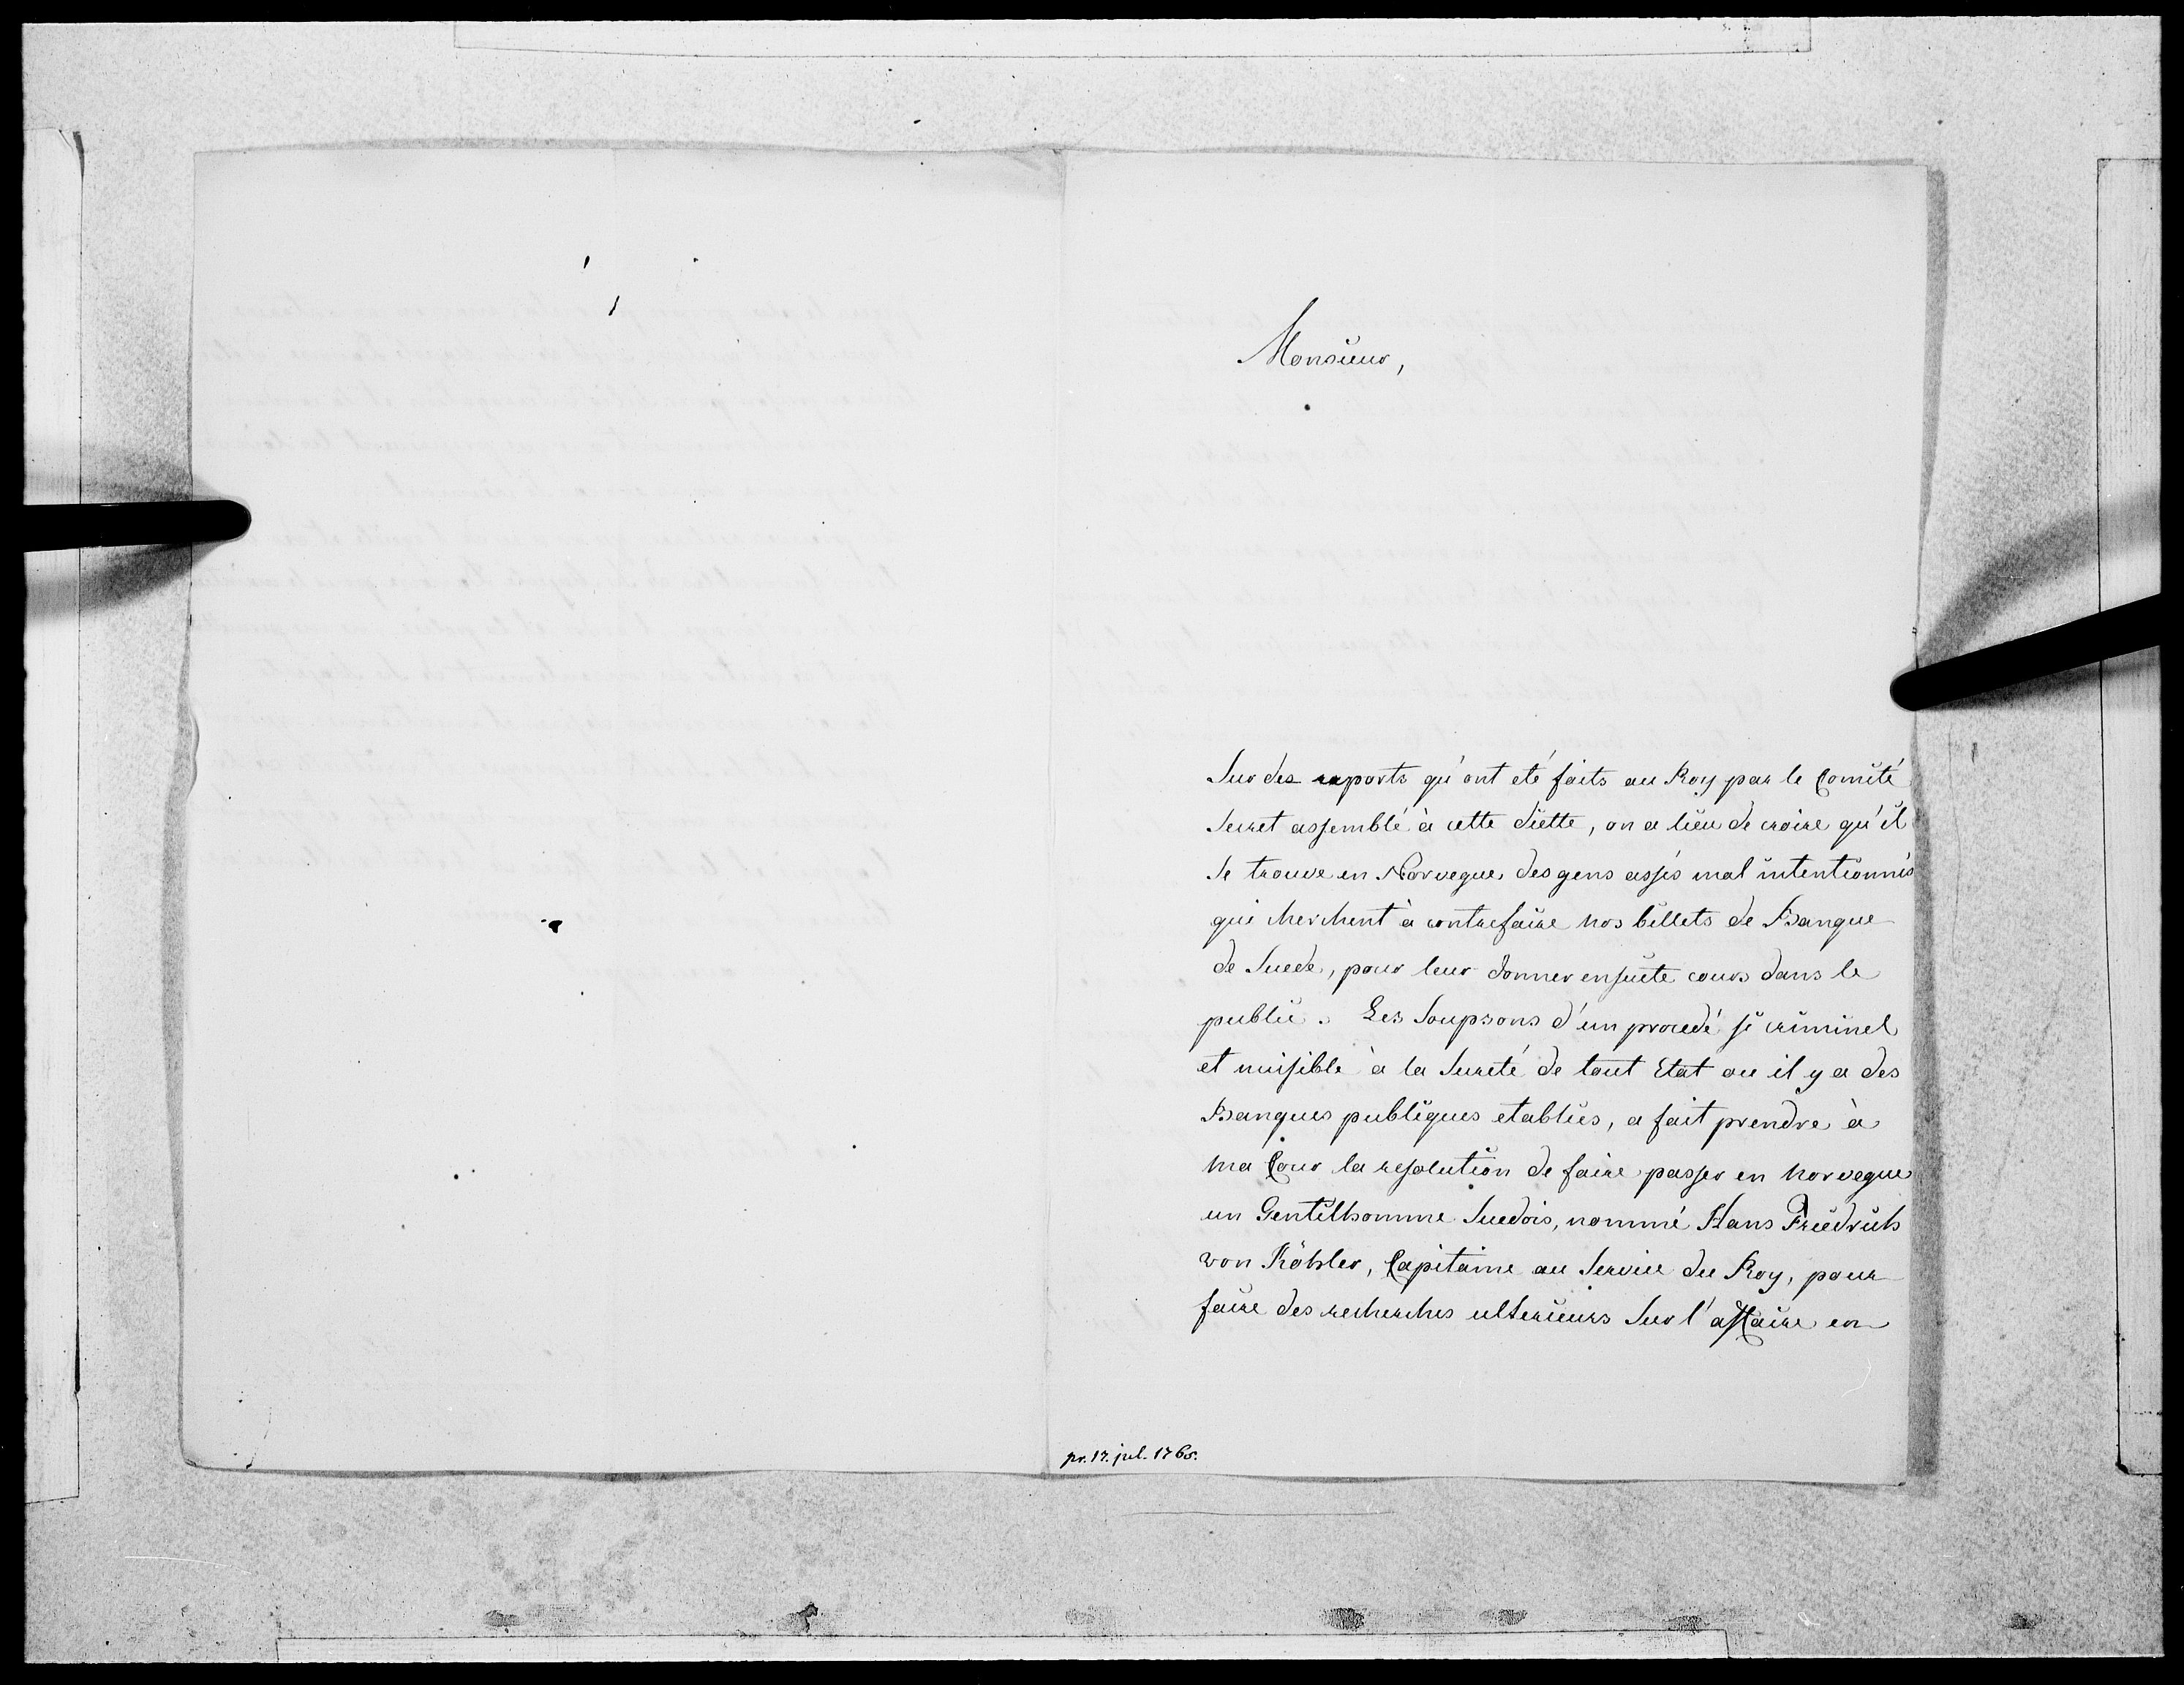 Monsieur,
Sur des raports qu'ont eté faits au Roy par le Comité
Secret assemblé à cette diette, on a lieu de croire qu'il
se trouve en Norvegue des gens assés mal intentionnés
qui cherchent à contrefaire nos billets de Banque
de Suede, pour leur donner ensuite cours dans le
public. Les Soupsons d'un procedé si criminel
et nuisible à la Sureté de tout Etat ou il y a des
Banques publiques etablies, a fait prendre à
ma Cour la resolution de faire passer en Norvegue
un Gentilhomme Suedois, nommé Hans Friedrich
von Köhler, Capitaine au Service du Roy, pour
faire des recherches ulterieurs Sur l'affaire en
pr. 17. jul. 1765.